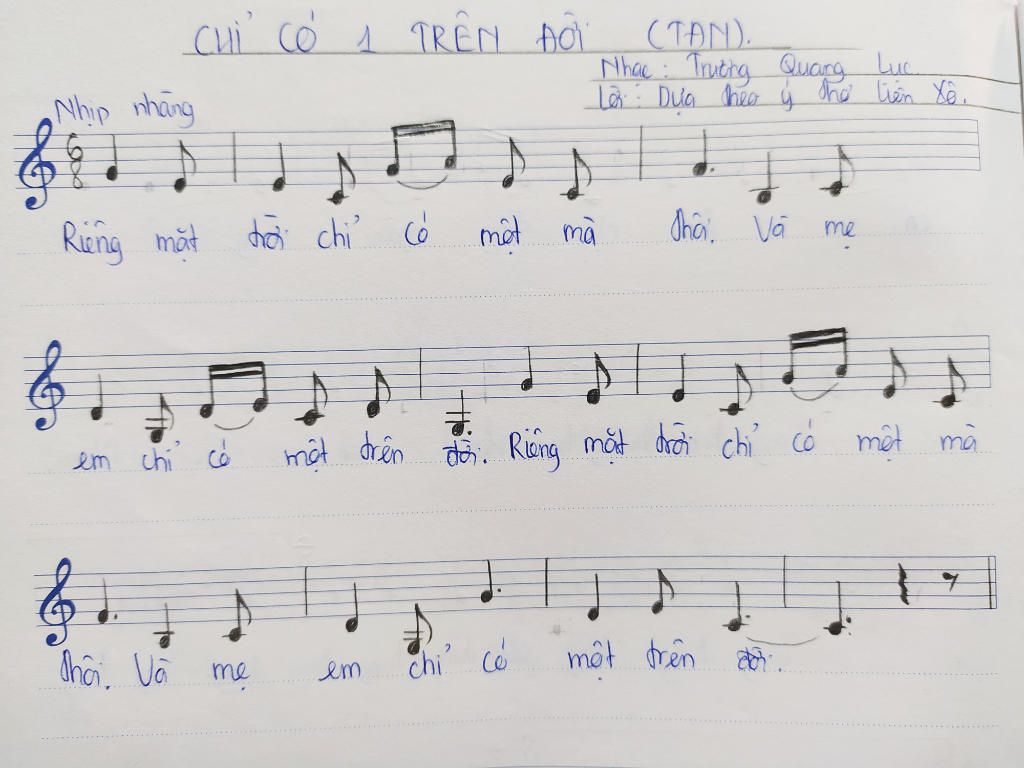 CHỈ CÓ 1 TRÊN ĐỜI (TĐN).
Nhạc: Trương Quang Lục
Lời: Dựa theo ý thơ Liên Xô.
Nhịp nhàng
6
8
Riêng mặt trời chỉ có một mà thôi. Và mẹ
em chỉ có một trên đời. Riêng mặt trời chỉ có một mà
thôi. Và mẹ em chỉ có một trên đời.